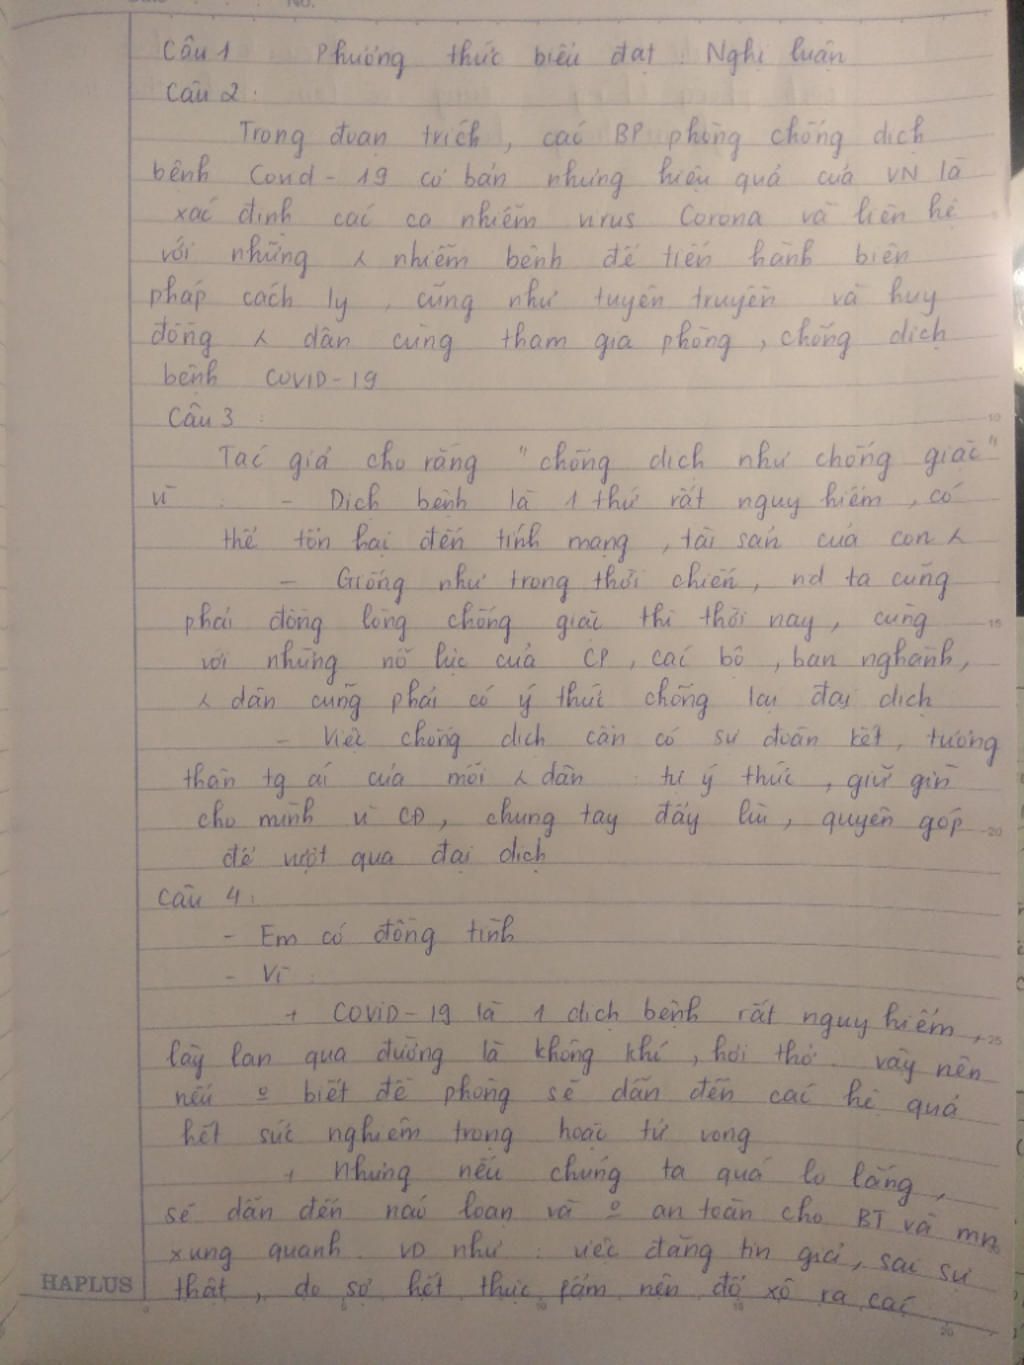 No.
Câu 1 Phương thức biểu đạt : Nghị luận
Câu 2 :
Trong đoạn trích, các BP phòng chống dịch
bệnh Covid-19 cơ bản nhưng hiệu quả của VN là
xác định các ca nhiễm virus Corona và liên hệ
với những λ nhiễm bệnh để tiến hành biện
pháp cách ly, cũng như tuyên truyền và huy
động λ dân cùng tham gia phòng, chống dịch
bệnh COVID-19
Câu 3 :
Tác giả cho rằng "chống dịch như chống giặc"
vì : - Dịch bệnh là 1 thứ rất nguy hiểm, có
thể tổn hại đến tính mạng, tài sản của con λ
- Giống như trong thời chiến, nd ta cũng
phải đồng lòng chống giặc thì thời nay, cùng
với những nỗ lực của CP, các bộ, ban nghành,
λ dân cũng phải có ý thức chống lại đại dịch
- Việc chống dịch cần có sự đoàn kết, tương
thân tg ái của mỗi λ dân : tự ý thức, giữ gìn
cho mình vì CĐ, chung tay đẩy lùi, quyên góp
để vượt qua đại dịch
Câu 4 :
- Em có đồng tình
- Vì :
+ COVID-19 là 1 dịch bệnh rất nguy hiểm,
lây lan qua đường là không khí, hơi thở. Vậy nên
nếu o biết đề phòng sẽ dẫn đến các hệ quả
hết sức nghiêm trọng hoặc tử vong
+ Nhưng nếu chúng ta quá lo lắng,
sẽ dẫn đến náo loạn và o an toàn cho BT và mn
xung quanh. VD như : việc đăng tin giả, sai sự
HAPLUS thật, do sợ hết thực phẩm nên đổ xô ra các